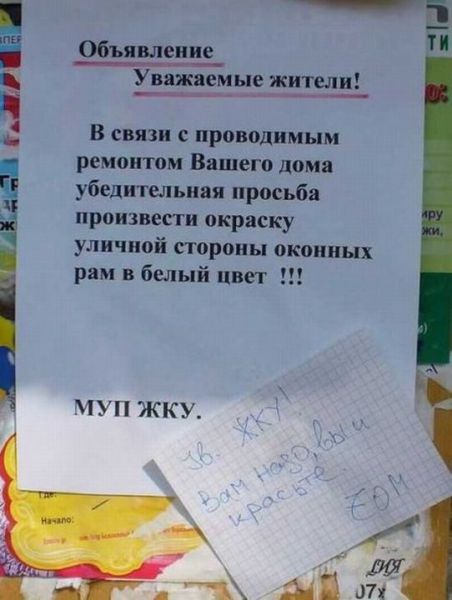 Объявление
Уважаемые жители!
В связи с проводимым
ремонтом Вашего дома
убедительная просьба
произвести окраску
уличной стороны оконных
рам в белый цвет !!!
МУП ЖКУ.
Ув. ЖКУ!
Вам надо, вы и
красьте.
ТИ
иру
жи,
Где:
Начало:
07